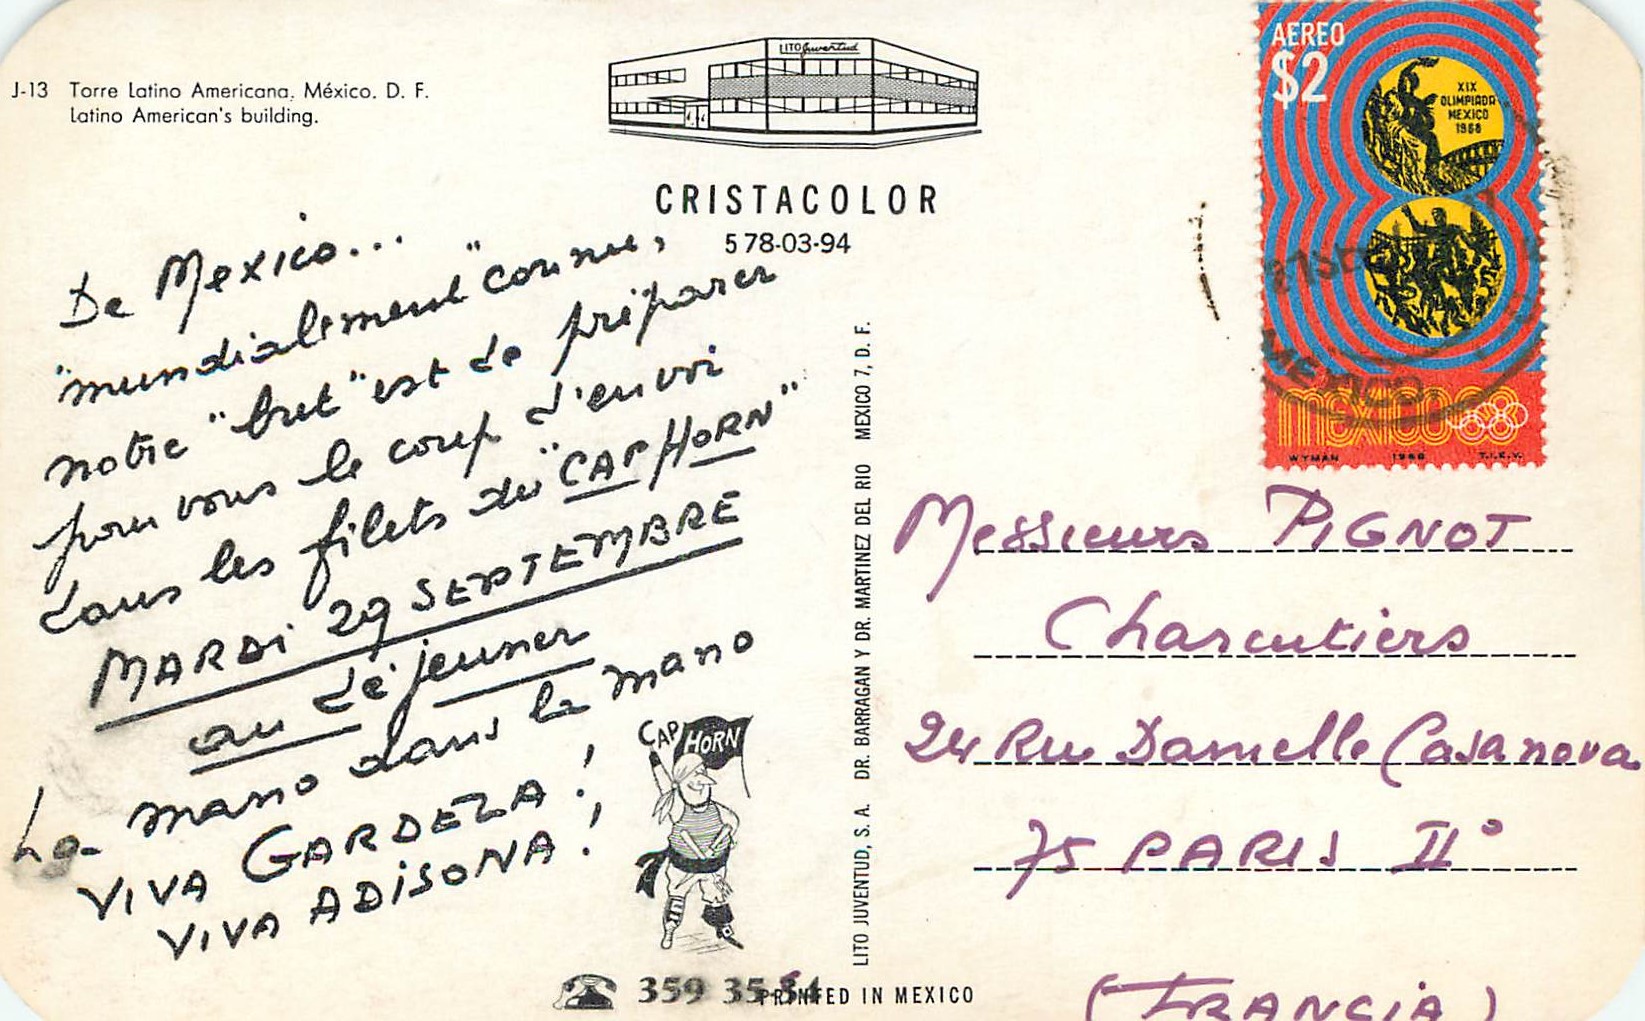 J-13 Torre Latino Americana. México. D. F.
Latino American's building.
LITO Juventud
CRISTACOLOR
578-03-94
De Mexico...
"mundialement" connue,
notre "but" est de préparer
pour vous le coup d'envoi
dans les filets du "CAP HORN"
MARDI 29 SEPTEMBRE
au déjeuner
La mano dans la mano
VIVA GARDEZA!
VIVA ADISONA!
CAP HORN
359 35
PRINTED IN MEXICO
LITO JUVENTUD, S. A. DR. BARRAGAN Y DR. MARTINEZ DEL RIO MEXICO 7, D. F.
AEREO
$2
XIX
OLIMPIADA
MEXICO
1968
MEXICO
MEXICO68
WYMAN 1968 T.I.E.V.
Messieurs PIGNOT
Charcutiers
24 Rue Danielle Casanova
75 PARIS II°
(FRANCIA)